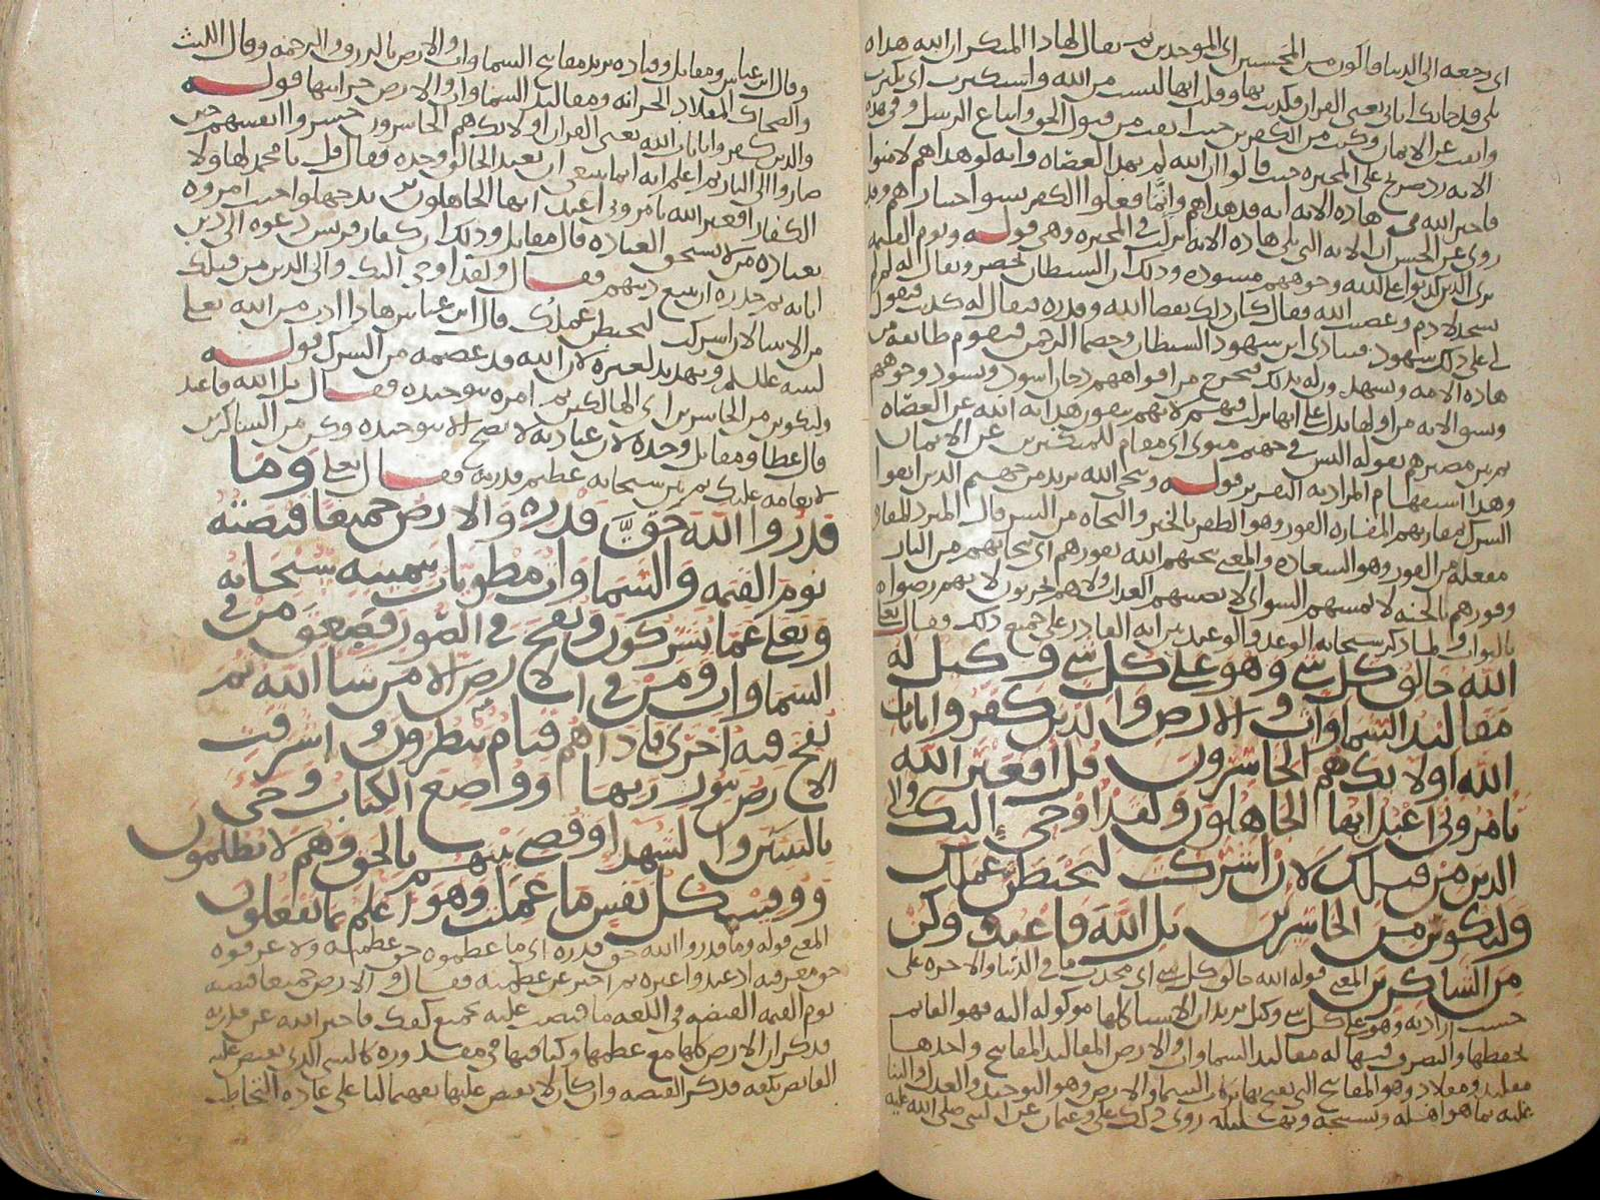 اى رجعه الى الدنيا فاكون من المحسنين اى الموحدين ثم يقال لهاذا المتكبر ان الله هداه
بلى قد جاتك اياتى يعنى القران فكذبت بها وقلت انها ليست من الله واستكبرت اى تكبرت
وانفت عن الايمان وكنت من الكفرين حيث انفت من قبول الحق واتباع الرسل وفى هذه
الايه رد صريح على المجبره حيث قالوا ان الله لم يهد العصاه وانه لو هداهم لامنوا
فاخبر الله فى هاذه الايه انه قد هداهم وانما فعلوا الكفر بسو اختيارهم وقد
روى عن الحسن ان الايه التى تلى هاذه الايه نزلت فى المجبره وهى قوله ويوم القيمه
ترى الذين كذبوا على الله وجوههم مسوده وذلك ان الشيطان يحضر ويقال له لم لم
تسجد لادم وعصيت الله فقال كان ذلك بقضا الله وقدره فيقال له كذبت فيقول
لى على ذلك شهود فينادى اين شهود الشيطان وخصما الرحمن فيقوم طايفه من
هاذه الامه وتشهد وله بذلك فيخرج من افواههم دخان اسود وتسود وجوههم
ثم بين مصيرهم بقوله اليس فى جهنم مثوى اى مقام للمتكبرين عن الايمان
وهذا استفهام المراد به التقرير قوله وينجى الله يريد من جهنم الذين اتقوا
الشرك بمفازتهم المفازه الفوز وهو الظفر بالخير والنجاه من الشر قال المبرد المفازه
مفعله من الفوز وهو السعاده والمعنى ينجيهم الله بفوزهم اى بنجاتهم من النار
وفوزهم بالجنه لا يمسهم السوء اى لا يصيبهم العذاب ولا هم يحزنون لانهم رضوا
بالثواب ولما ذكر سبحانه الوعد والوعيد بين انه القادر على جميع ذلك فقال تعالى
الله خالق كل شى وهو على كل شى وكيل له
مقاليد السماوات والارض والذين كفروا بايات
الله اولايك هم الخاسرون قل افغير الله
تامرونى اعبد ايها الجاهلون ولقد اوحى اليك والى
الذين من قبلك لان اشركت ليحبطن عملك
ولتكونن من الخاسرين بل الله فاعبد وكن
من الشاكرين المعنى قوله الله خالق كل شى اى محدث ما فى الدنيا والاخره على
حسب ارادته وهو على كل شى وكيل يريد ان الاشيا كلها موكوله اليه فهو القايم
بحفظها والتصرف فيها له مقاليد السماوات والارض المقاليد المفاتيح واحدها
مقليد ومقلاد وهو المفاتيح التى يفتح بها بركات السما والارض وهو التوحيد والعدل والثنا
عليه بما هو اهله وتسبيحه وتهليله روى ذلك على وعثمان عن النبى صلى الله عليه
وقال ابن عباس ومقاتل وقتاده يريد مفاتيح السماوات والارض بالرزق والرحمه وقال الليث
والضحاك المقلاد الخزانه ومقاليد السماوات والارض خزاينها قوله
والذين كفروا بايات الله يعنى القران اولايك هم الخاسرون خسروا انفسهم حين
صاروا الى النار ثم اعلم انه انما ينبغى ان يعبد الخالق وحده فقال قل يا محمد لهاولا
الكفار افغير الله تامرونى اعبد ايها الجاهلون بد جهلوا حيث امروه
بعباده من لا يستحق العباده قال مقاتل وذلك ان كفار قريش دعوه الى دين
ابايه ثم حذره ان يتبع دينهم فقال ولقد اوحى اليك والى الذين من قبلك
من الانبيا لان اشركت ليحبطن عملك قال ابن عباس هاذا ادب من الله تعالى
لنبيه عليلم وتهديد لغيره لان الله قد عصمه من الشرك قوله
ولتكونن من الخاسرين اى الهالكين ثم امره بتوحيده فقال بل الله فاعبد
قال عطا ومقاتل وحده لان عبادته لا تصح الا بتوحيده وكن من الشاكرين
لانعامه عليك ثم بين سبحانه عظيم قدرته فقال تعلى وما
قدروا الله حق قدره والارض جميعا قبضته
يوم القيمه والسماوات مطويات بيمينه سبحانه
وتعلى عما يشركون ونفخ فى الصور فصعق من فى
السماوات ومن فى الارض الا من شا الله ثم
نفخ فيه اخرى فاذا هم قيام ينظرون واشرقت
الارض بنور ربها ووضع الكتاب وجى
بالنبين والشهدا وقضى بينهم بالحق وهم لا يظلمون
ووفيت كل نفس ما عملت وهو اعلم بما يفعلون
المعنى قوله وما قدروا الله حق قدره اى ما عظموه حق عظمته ولا عرفوه
حق معرفته اذ عبدوا غيره ثم اخبر عن عظمته فقال والارض جميعا قبضته
يوم القيمه القبضه فى اللغه ما قبضت عليه بجميع كفك فاخبر الله عن قدرته
فذكر ان الارض كلها مع عظمها وكثافتها فى مقدوره كالشى الذى يقبض عليه
القابض بكفه فذكر القبضه وان كان لا يقبض عليها تفهيما لنا على عاده التخاطب